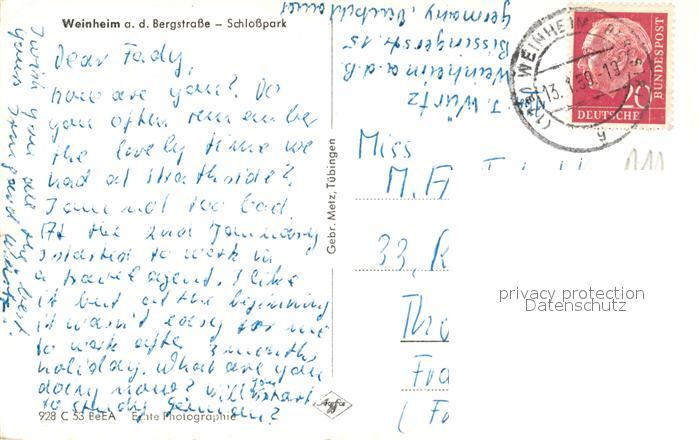 Weinheim a. d. Bergstraße – Schloßpark
Dear Fady,
how are you? Do
you often remember
the lovely time we
had at Strathside?
I am not too bad.
At the 2nd January
I started to work in
a travel agent. I like
it but at the beginning
it wasn't easy for me
to work after 3 months
holiday. What are you
doing now? Will you start
to study German?
I wish you all the best
yours Irmgard
928 C 53 BeEA Echte Photographie
Gebr. Metz, Tübingen
Agfa
J. Würtz
Weinheim a.d.B
Bissingerstr. 15
Germany,
WEINHEIM
13.
DEUTSCHE
BUNDESPOST
20
Miss
M.
33,
privacy protection
Datenschutz